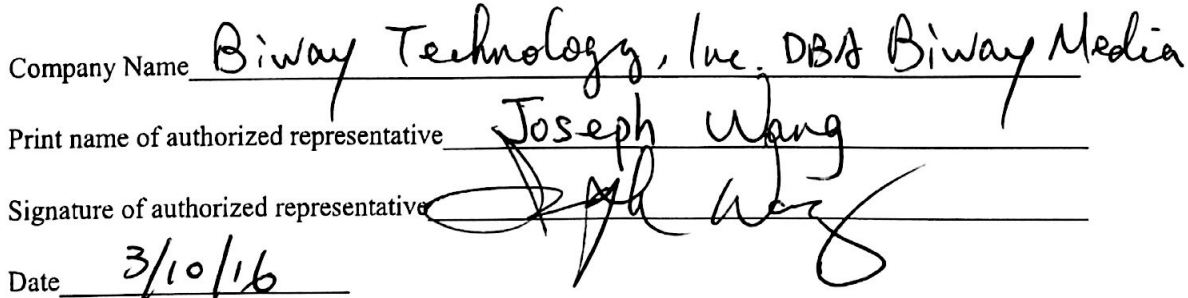 Company Name Biway Technology, Inc. DBA Biway Media
Print name of authorized representative Joseph Wang
Signature of authorized representative Joseph Wang
Date 3/10/16